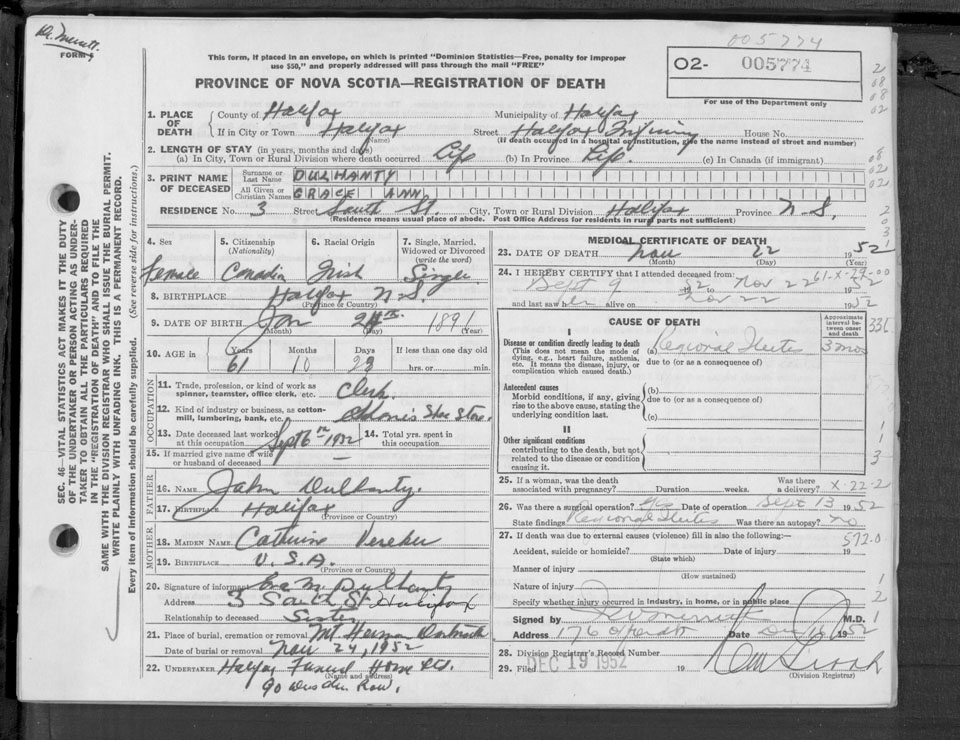 Dr. Merrett.
FORM 9
005774
This form, if placed in an envelope, on which is printed "Dominion Statistics—Free, penalty for improper
use $50," and properly addressed will pass through the mail "FREE"
PROVINCE OF NOVA SCOTIA—REGISTRATION OF DEATH
O2- 005774
For use of the Department only
1. PLACE OF DEATH
County of Halifax Municipality of Halifax
If in City or Town Halifax Street Halifax Infirmary House No.
(Name) (If death occurred in a hospital or institution, give the name instead of street and number)
2. LENGTH OF STAY (in years, months and days)
(a) In City, Town or Rural Division where death occurred Life (b) In Province Life. (c) In Canada (if immigrant)
3. PRINT NAME OF DECEASED
Surname or Last Name DULHANTY
All Given or Christian Names GRACE ANN
RESIDENCE No. 3 Street South St. City, Town or Rural Division Halifax Province N.S.
(Residence means usual place of abode. Post Office Address for residents in rural parts not sufficient)
4. Sex
Female
5. Citizenship
(Nationality)
Canadian
6. Racial Origin
Irish
7. Single, Married,
Widowed or Divorced
(write the word)
Single
8. BIRTHPLACE Halifax N.S.
(Province or Country)
9. DATE OF BIRTH Jan 1891
(Month) (Day) (Year)
10. AGE in Years Months Days If less than one day old
61 10 hrs. or min.
OCCUPATION
11. Trade, profession, or kind of work as
spinner, teamster, office clerk, etc. Clerk
12. Kind of industry or business, as cotton-
mill, lumbering, bank, etc. Shoe Store.
13. Date deceased last worked
at this occupation Sept 6th 1952
14. Total yrs. spent in
this occupation
15. If married give name of wife
or husband of deceased —
FATHER
16. NAME John Dulhanty.
17. BIRTHPLACE Halifax
(Province or Country)
MOTHER
18. MAIDEN NAME Catherine
19. BIRTHPLACE U.S.A.
(Province or Country)
20. Signature of informant M. Dulhanty
Address 3 South St. Halifax
Relationship to deceased Sister
21. Place of burial, cremation or removal Mt. Herman Dartmouth
Date of burial or removal Nov 24, 1952
22. UNDERTAKER Halifax Funeral Home Ltd.
(Name and address)
90 Dresden Row.
MEDICAL CERTIFICATE OF DEATH
23. DATE OF DEATH Nov 22 1952
(Month) (Day) (Year)
24. I HEREBY CERTIFY that I attended deceased from:
Sept 9 1952 to Nov 22 1952
and last saw her alive on Nov 22 1952
61-X-29-00
CAUSE OF DEATH
Approximate interval between onset and death
I
Disease or condition directly leading to death
(This does not mean the mode of
dying, e.g., heart failure, asthenia,
etc. It means the disease, injury, or
complication which caused death.)
(a) Regional Ileitis 3 mos
due to (or as a consequence of)
Antecedent causes
Morbid conditions, if any, giving
rise to the above cause, stating the
underlying condition last.
(b)
due to (or as a consequence of)
(c)
II
Other significant conditions
contributing to the death, but not
related to the disease or condition
causing it.
25. If a woman, was the death Was there
associated with pregnancy? Duration weeks. a delivery? X-22-2
26. Was there a surgical operation? Yes Date of operation Sept 13 1952
State findings Regional Ileitis Was there an autopsy? no
27. If death was due to external causes (violence) fill in also the following:— 572.0
Accident, suicide or homicide? Date of injury 19
(State which)
Manner of injury
(How sustained)
Nature of injury
Specify whether injury occurred in industry, in home, or in public place
Signed by M.D.
Address 176 Date Dec 1952
28. Division Registrar's Record Number
29. Filed DEC 19 1952 19
(Division Registrar)
SEC. 46—VITAL STATISTICS ACT MAKES IT THE DUTY
OF THE UNDERTAKER OR PERSON ACTING AS UNDER-
TAKER TO OBTAIN ALL THE PARTICULARS REQUIRED
IN THE "REGISTRATION OF DEATH" AND TO FILE THE
SAME WITH THE DIVISION REGISTRAR WHO SHALL ISSUE THE BURIAL PERMIT.
WRITE PLAINLY WITH UNFADING INK. THIS IS A PERMANENT RECORD.
Every item of information should be carefully supplied. (See reverse side for instructions.)